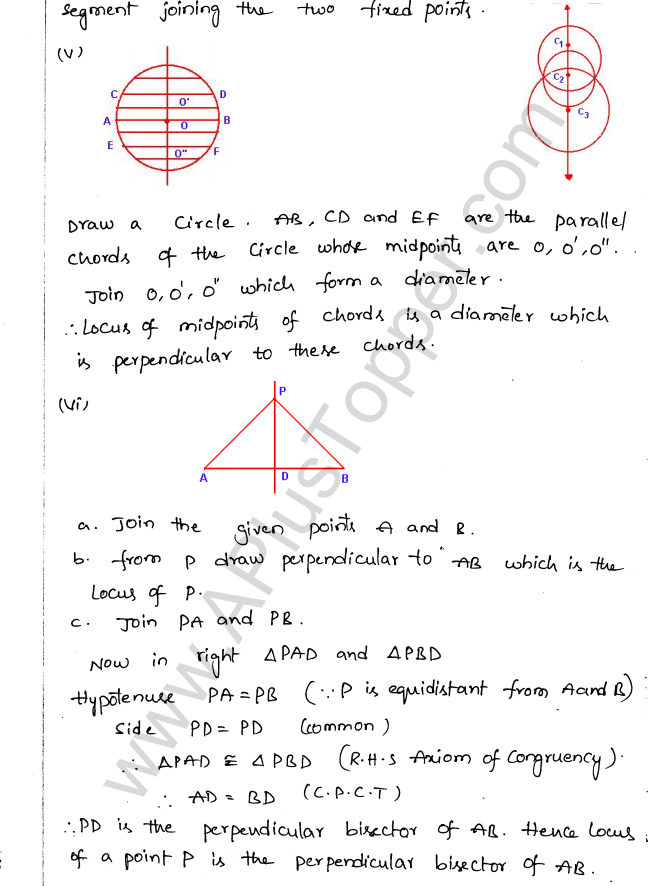 segment joining the two fixed points.
(V)
C D
O'
A O B
E O" F
C1
C2
C3
Draw a Circle. AB, CD and EF are the parallel
chords of the circle whose midpoints are O, O', O".
Join O, O', O" which form a diameter.
∴ Locus of midpoints of chords is a diameter which
is perpendicular to these chords.
(Vi)
P
A D B
a. Join the given points A and B.
b. from P draw perpendicular to AB which is the
Locus of P.
c. Join PA and PB.
Now in right ΔPAD and ΔPBD
Hypotenuse PA = PB (∵ P is equidistant from A and B)
Side PD = PD (common)
∴ ΔPAD ≅ ΔPBD (R.H.S Axiom of Congruency).
∴ AD = BD (C.P.C.T)
∴ PD is the perpendicular bisector of AB. Hence Locus
of a point P is the perpendicular bisector of AB.
www.APlusTopper.com